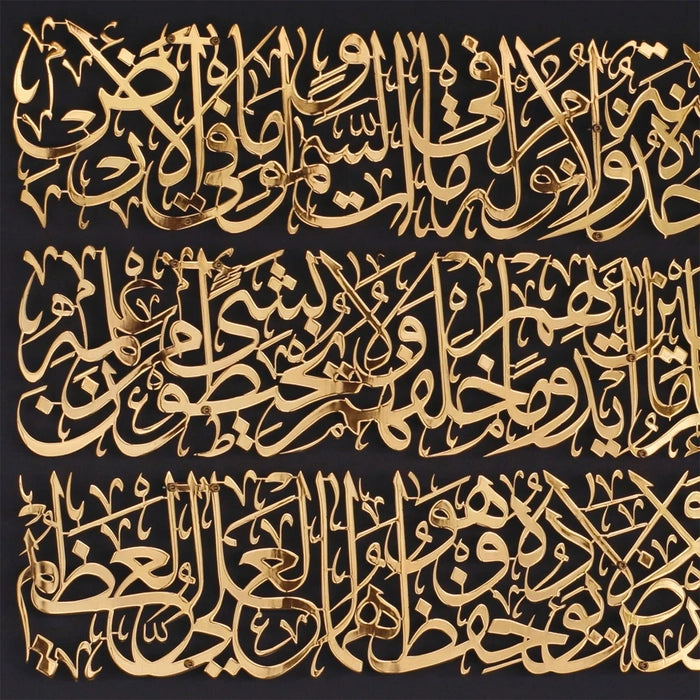 ولا نوم له ما في السموت وما في الأرض
أيديهم وما خلفهم ولا يحيطون بشيء من علمه
ولا يؤده حفظهما وهو العلي العظيم